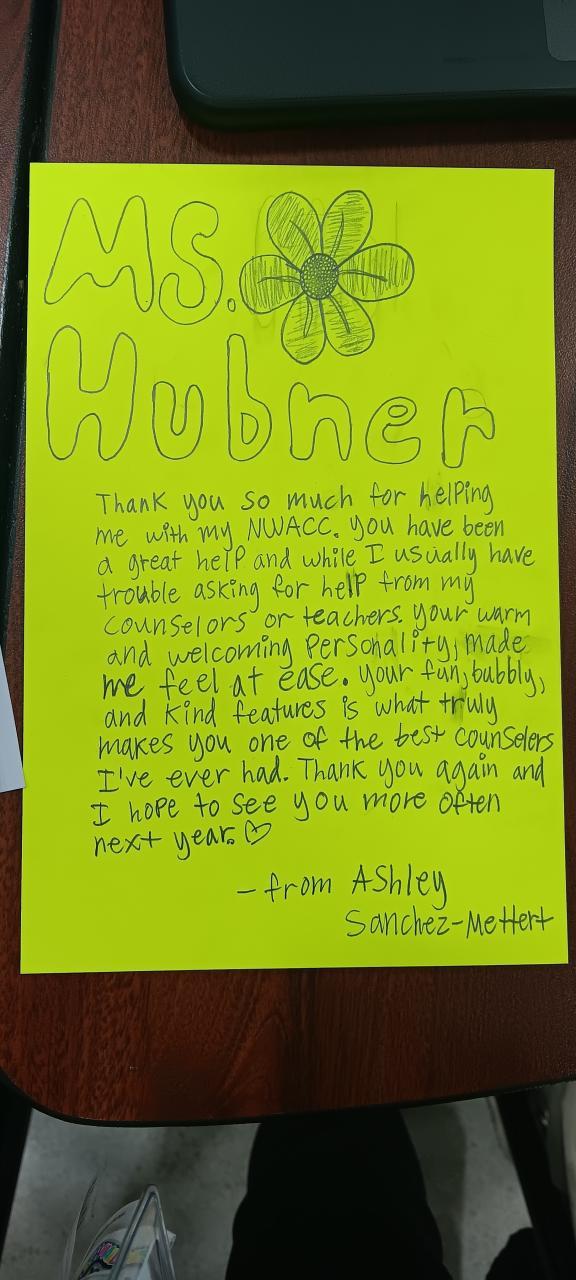 Ms.
Hubner
Thank you so much for helping
me with my NWACC. you have been
a great help and while I usually have
trouble asking for help from my
counselors or teachers. your warm
and welcoming personality, made
me feel at ease. your fun, bubbly,
and kind features is what truly
makes you one of the best counselers
I've ever had. Thank you again and
I hope to see you more often
next year. ♡
- from Ashley
Sanchez-Mettert